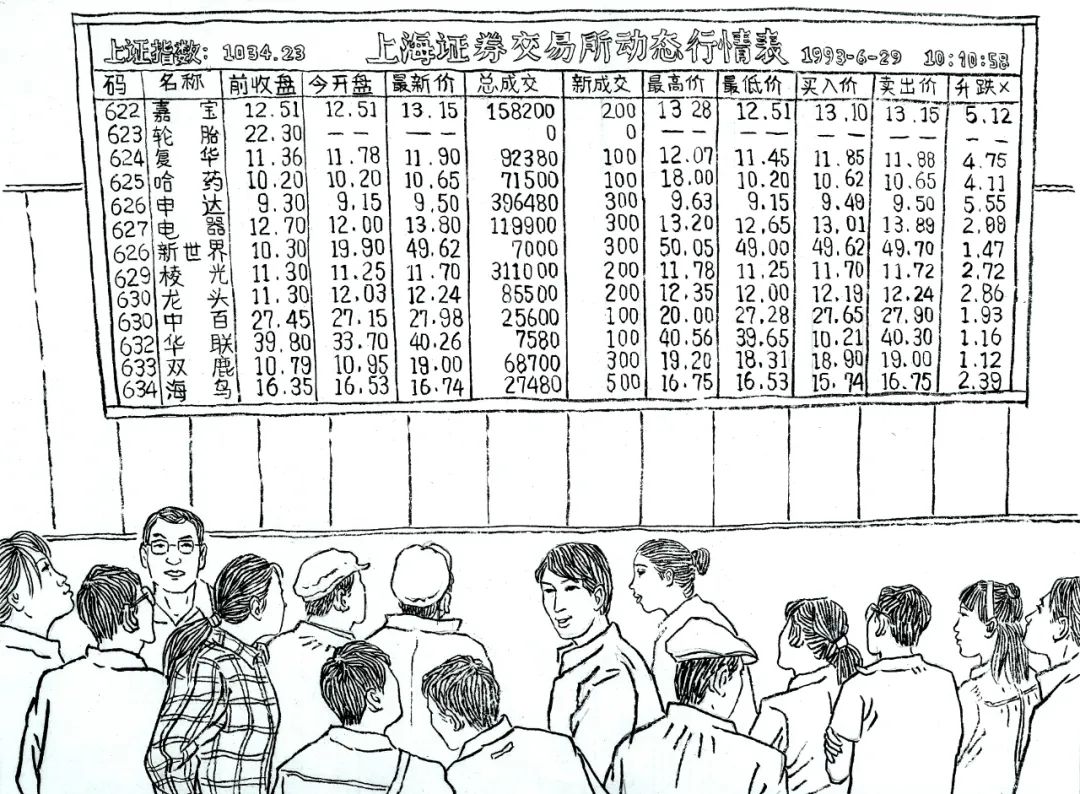 上证指数: 1034.23 上海证券交易所动态行情表 1993-6-29 10:10:58
码 名称 前收盘 今开盘 最新价 总成交 新成交 最高价 最低价 买入价 卖出价 升跌×
622 嘉宝 12.51 12.51 13.15 158200 200 13 28 12.51 13.10 13.15 5.12
623 轮胎 22.30 -- -- 0 0 -- -- -- -- --
624 复华 11.36 11.78 11.90 92380 100 12.07 11.45 11.85 11.88 4.75
625 哈药 10.20 10.20 10.65 71500 100 18.00 10.20 10.62 10.65 4.11
626 申达 9.30 9.15 9.50 396480 300 9.63 9.15 9.49 9.50 5.55
627 电器 12.70 12.00 13.80 119900 300 13.20 12.65 13.01 13.89 2.88
626 新世界 10.30 19.90 49.62 7000 300 50.05 49.00 49.62 49.70 1.47
629 棱光 11.30 11.25 11.70 311000 200 11.78 11.25 11.70 11.72 2.72
630 龙头 11.30 12.03 12.24 85500 200 12.35 12.00 12.19 12.24 2.86
630 中百 27.45 27.15 27.98 25600 100 20.00 27.28 27.65 27.90 1.93
632 华联 39.80 33.70 40.26 7580 100 40.56 39.65 10.21 40.30 1.16
633 双鹿 10.79 10.95 19.00 68700 300 19.20 18.31 18.90 19.00 1.12
634 海鸟 16.35 16.53 16.74 27480 500 16.75 16.53 15.74 16.75 2.39